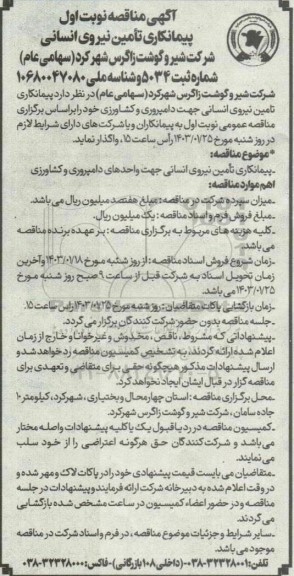 آگهی مناقصه نوبت اول
پیمانکاری تأمین نیروی انسانی
شرکت شیر و گوشت زاگرس شهرکرد (سهامی عام)
شماره ثبت ۵۰۳۴ و شناسه ملی ۱۰۶۸۰۰۴۷۰۸۰
شرکت شیر و گوشت زاگرس شهرکرد (سهامی عام) در نظر دارد پیمانکاری
تامین نیروی انسانی جهت دامپروری و کشاورزی خود را براساس برگزاری
مناقصه عمومی نوبت اول به پیمانکاران و یا شرکت های دارای شرایط لازم
در روز شنبه مورخ ۱۴۰۳/۰۱/۲۵ رأس ساعت ۱۵، واگذار نماید.
*موضوع مناقصه:
ـ پیمانکاری تأمین نیروی انسانی جهت واحدهای دامپروری و کشاورزی
اهم موارد مناقصه:
ـ میزان سپرده شرکت در مناقصه: مبلغ هفتصد میلیون ریال می باشد.
ـ مبلغ فروش فرم و اسناد مناقصه: یک میلیون ریال.
ـ کلیه هزینه های مربوط به برگزاری مناقصه: بر عهده برنده مناقصه
می باشد.
ـ زمان شروع فروش اسناد مناقصه: از روز شنبه مورخ ۱۴۰۳/۰۱/۱۸ و آخرین
زمان تحویل اسناد به شرکت قبل از ساعت ۹ صبح روز شنبه مورخ
۱۴۰۳/۰۱/۲۵ می باشد.
ـ زمان بازگشایی پاکات متقاضیان: روز شنبه مورخ ۱۴۰۳/۰۱/۲۵ رأس ساعت ۱۵.
ـ جلسه مناقصه بدون حضور شرکت کنندگان برگزار می گردد.
ـ پیشنهاداتی که مشروط، ناقص، مخدوش و غیرخوانا و خارج از زمان
اعلام شده ارائه گردند، به تشخیص کمیسیون مناقصه رد خواهد شد و
ارسال پیشنهادات مذکور هیچگونه حقی برای متقاضی و تعهدی برای
مناقصه گزار در قبال ایشان ایجاد نخواهد کرد.
ـ محل برگزاری مناقصه: استان چهارمحال و بختیاری، شهرکرد، کیلومتر ۱۰
جاده سامان، شرکت شیر و گوشت زاگرس شهرکرد.
ـ کمیسیون مناقصه در رد یا قبول یک یا کلیه پیشنهادات واصله مختار
می باشد و شرکت کنندگان حق هرگونه اعتراضی را از خود سلب
می نمایند.
ـ متقاضیان می بایست قیمت پیشنهادی خود را در پاکات لاک و مهر شده و
در وقت اعلام شده به دبیرخانه شرکت ارائه فرمایند و پیشنهادات در جلسه
مناقصه و در حضور اعضاء کمیسیون در ساعت مشخص شده بازگشایی
می گردند.
ـ سایر شرایط و جزئیات موضوع مناقصه، در فرم و اسناد شرکت در مناقصه
موجود می باشد.
تلفن: ۰۳۸-۳۲۳۲۸۰۰۱ (داخلی ۱۰۸ بازرگانی) - فاکس: ۰۳۸-۳۲۳۲۸۰۰۰